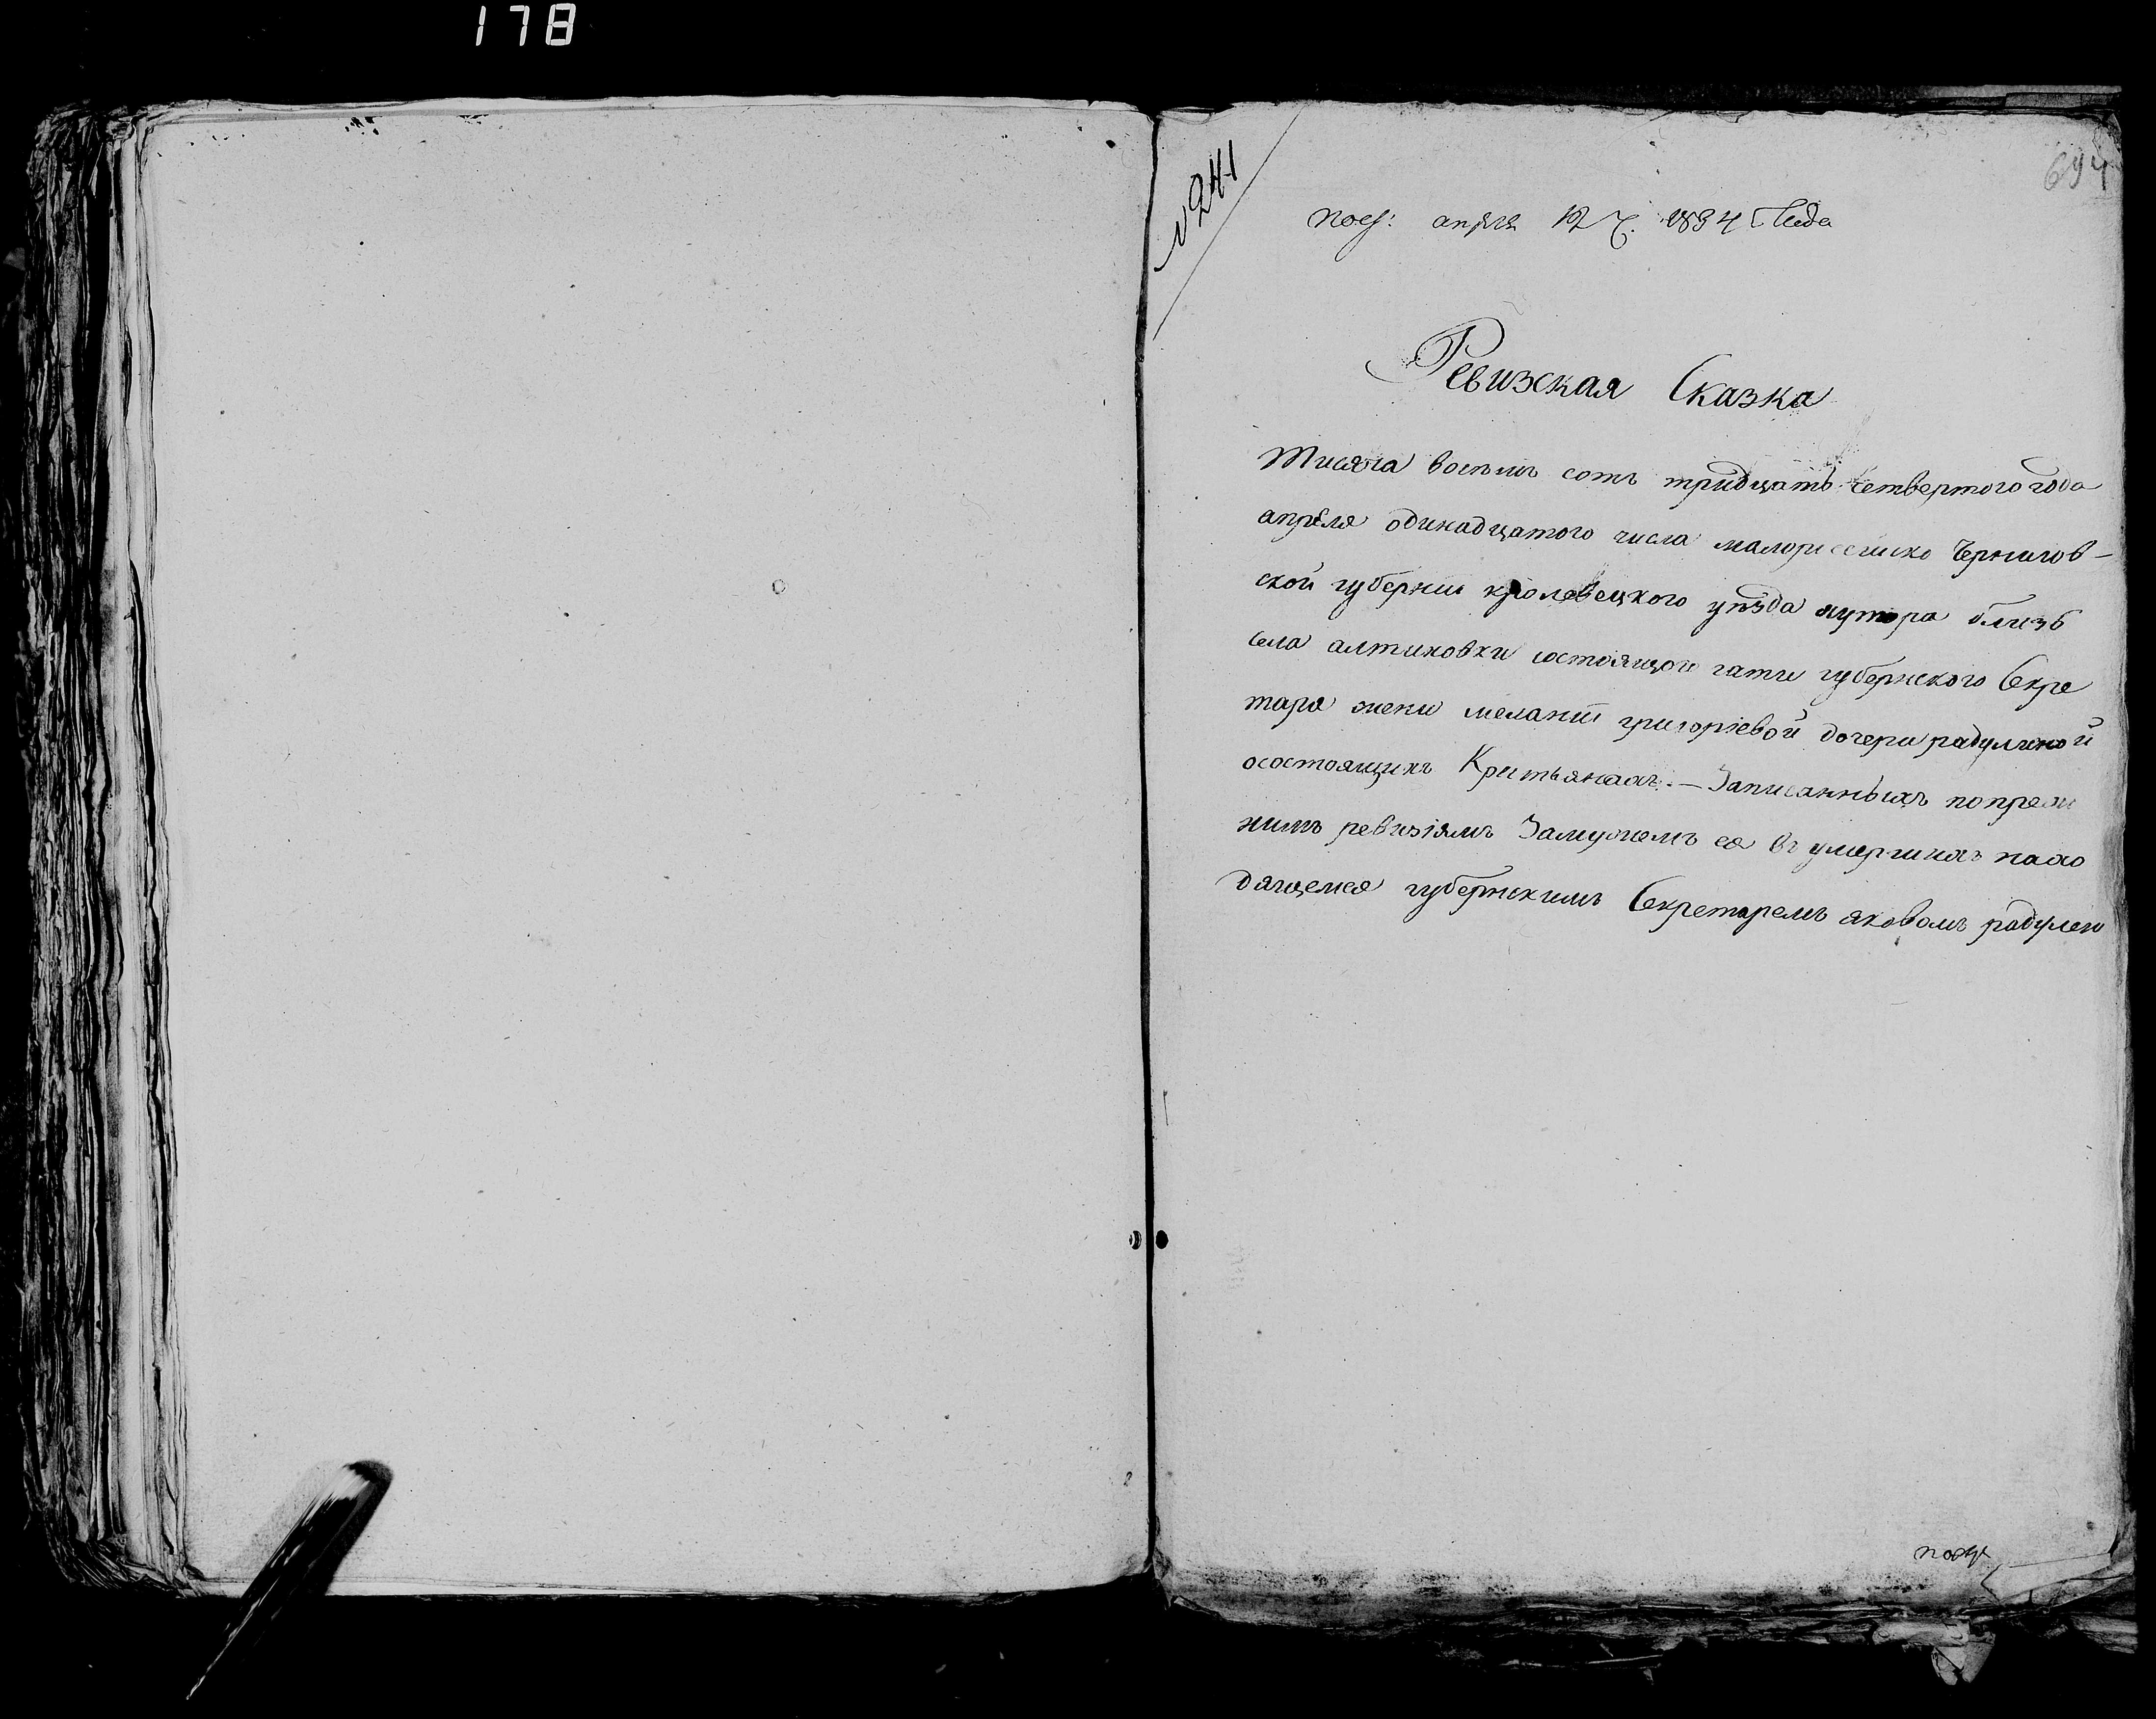 178
694
№ 241
Пол: апреля 12 ч. 1834 Года
Ревизская Сказка
Тисяча восемъ сотъ тридцать четвертого года
апреля одинадцатого числа малоросейско Чернигов-
ской губернии кролевецкого уезда хутора близь
села алтиновки состоящой гати губернского Секре
таря жени мелании григориевой дочери радулиной
осостоящихъ Крестьянахъ. — Записанныхъ попреж
нимъ ревизіямъ Замужемъ ея въ умершихъ нахо
дящемся губернскимъ Секретаремъ яковомъ радулен